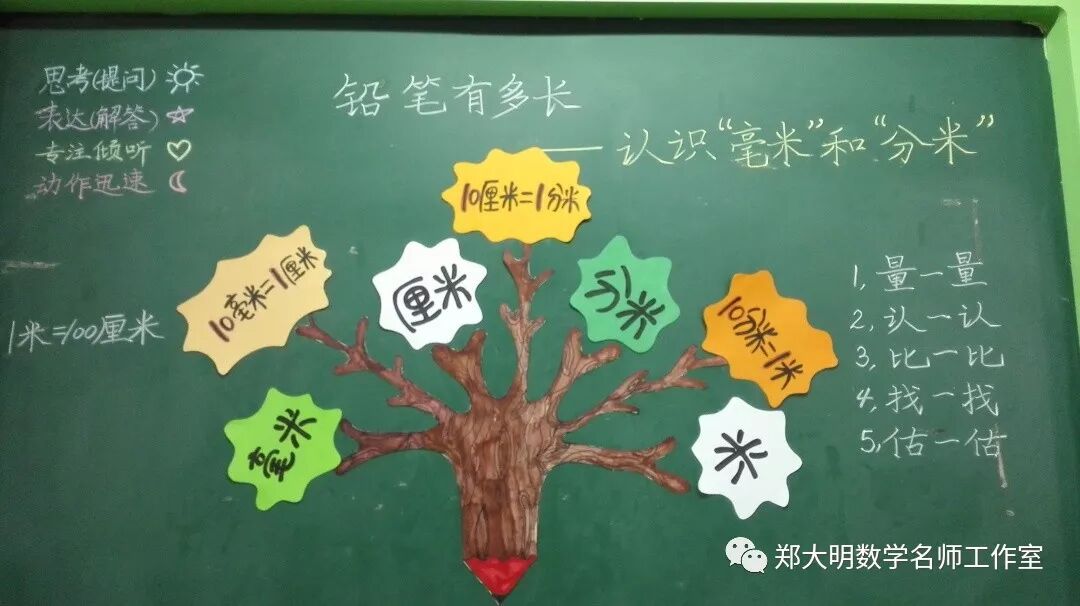 思考(提问)
表达(解答)
专注倾听
动作迅速
铅笔有多长
——认识“毫米”和“分米”
10厘米=1分米
10毫米=1厘米
厘米
分米
10分米=1米
毫米
米
1米=100厘米
1,量一量
2,认一认
3,比一比
4,找一找
5,估一估
郑大明数学名师工作室